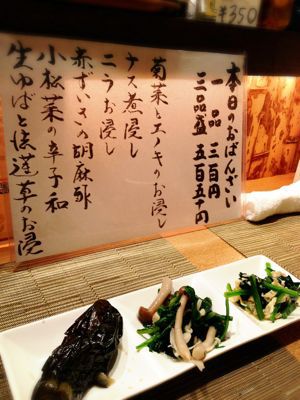 ¥350
本日のおばんざい
一品 三百円
三品盛 五百五十円
菊菜とエノキのお浸し
ナス煮浸し
ニラお浸し
赤ずいきの胡麻酢
小松菜の辛子和
生ゆばと法蓮草のお浸